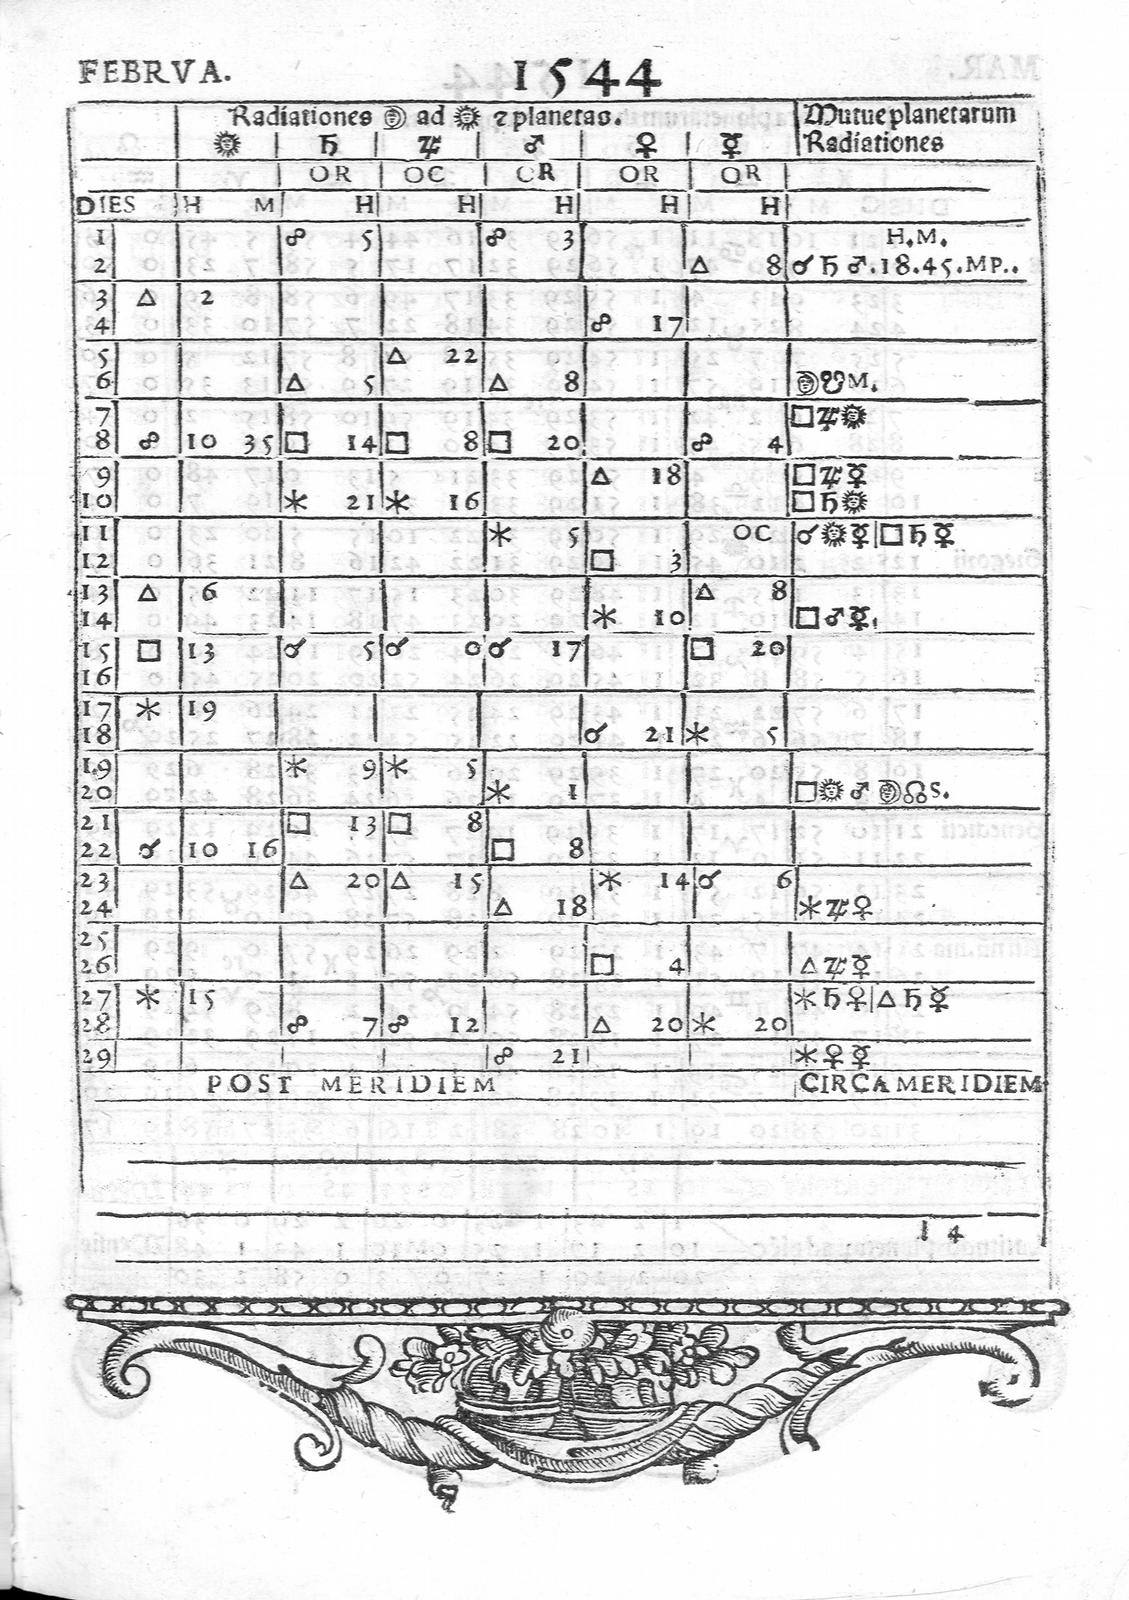 FEBRVA. 1544
Radiationes ☽ ad ☉ ⁊ planetas. Mutue planetarum
☉ ♄ ♃ ♂ ♀ ☿ Radiationes
OR OC OR OR OR
DIES H M H H H H H
1 ☍ 5 ☍ 3 H.M.
2 △ 8 ☌ ♄ ♂.18.45.MP..
3 △ 2
4 ☍ 17
5 △ 22
6 △ 5 △ 8 ☽ ☋ M.
7 □ ♃ ☉
8 ☍ 10 35 □ 14 □ 8 □ 20 ☍ 4
9 △ 18 □ ♃ ☿
10 ⚹ 21 ⚹ 16 □ ♄ ☉
11 ⚹ 5 OC ☌ ☉ ☿ | □ ♄ ☿
12 □ 3
13 △ 6 △ 8
14 ⚹ 10 □ ♂ ☿.
15 □ 13 ☌ 5 ☌ 0 ☌ 17 □ 20
16
17 ⚹ 19
18 ☌ 21 ⚹ 5
19 ⚹ 9 ⚹ 5
20 ⚹ 1 □ ☉ ♂ ☽ ☊ S.
21 □ 13 □ 8
22 ☌ 10 16 □ 8
23 △ 20 △ 15 ⚹ 14 ☌ 6
24 △ 18 ⚹ ♃ ♀
25
26 □ 4 △ ♃ ☿
27 ⚹ 15 ⚹ ♄ ♀ | △ ♄ ☿
28 ☍ 7 ☍ 12 △ 20 ⚹ 20
29 ☍ 21 ⚹ ♀ ☿
POST MERIDIEM CIRCA MERIDIEM
14